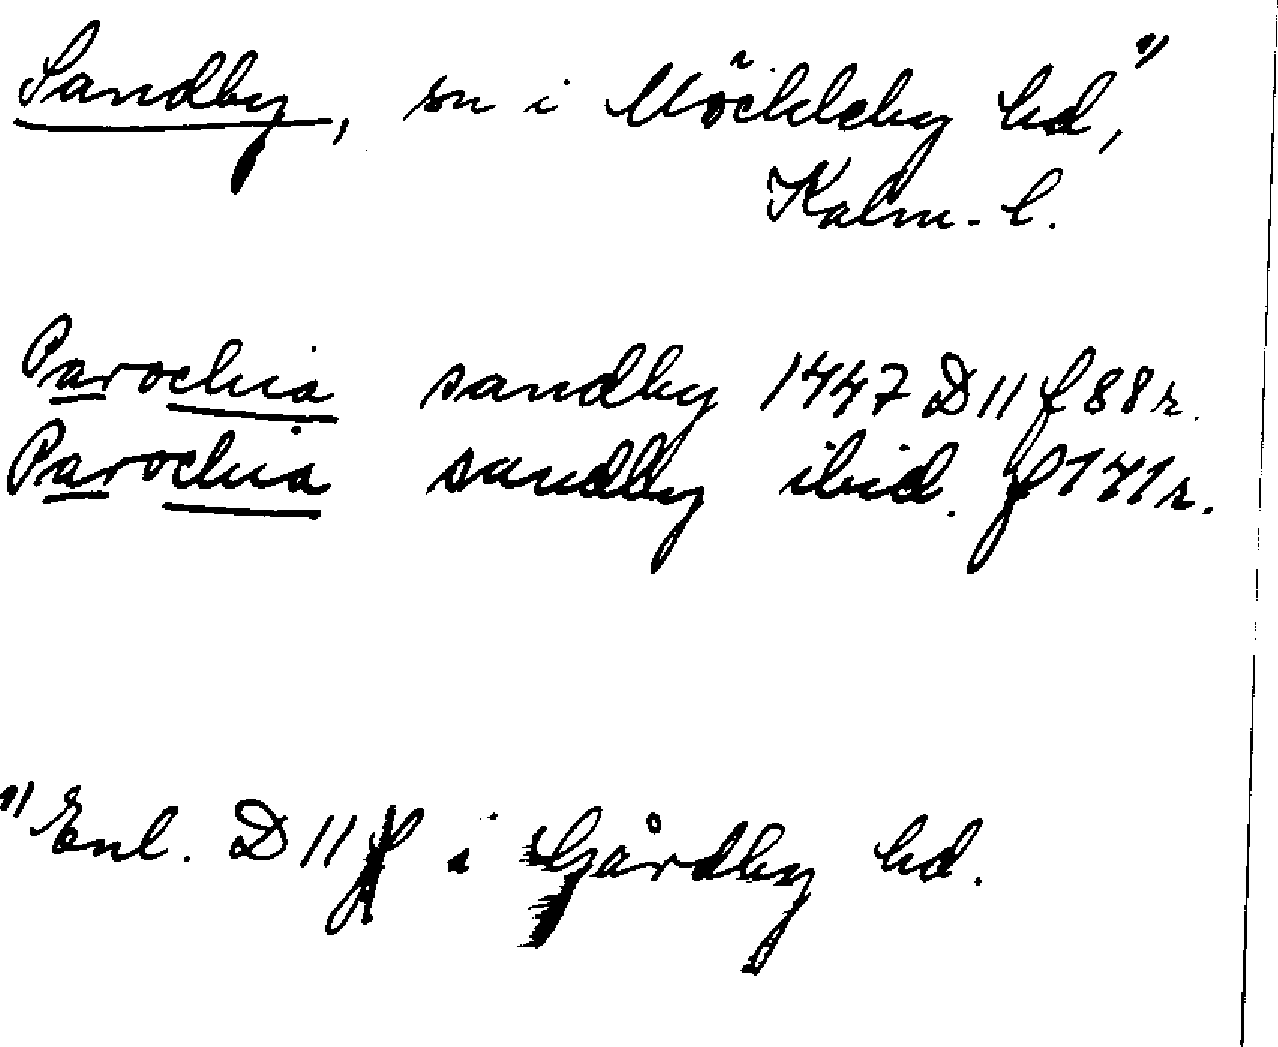 Sandby, sn i Möckleby hd,¹⁾
Kalm. l.
Parochia sandby 1447 D 11 f 88 r.
Parochia sandby ibid. f 141 r.
¹⁾ Enl. D 11 i Gårdby hd.